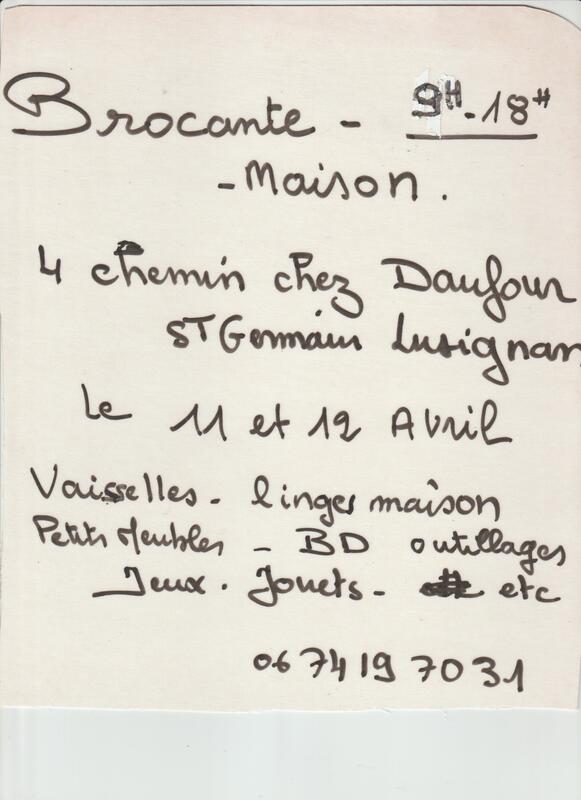 Brocante - 9H-18H
- Maison.
4 chemin chez Daufour
ST Germain Lusignan
Le 11 et 12 Avril
Vaisselles - linges maison
Petits Meubles - BD outillages
Jeux. Jouets - etc
06 74 19 70 31